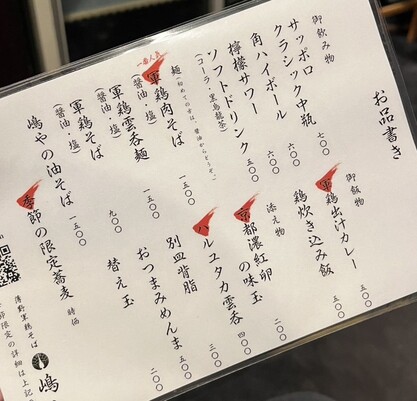 お品書き
御飲み物
サッポロ
クラシック中瓶 七〇〇
角ハイボール 六〇〇
檸檬サワー 六〇〇
ソフトドリンク 五〇〇
(コーラ・黒烏龍茶)
御飯物
軍鶏出汁カレー 五〇〇
鶏炊き込み飯 五〇〇
麺(初めての方は、醤油からどうぞ。)
一番人気
軍鶏肉そば
(醤油・塩) 一五〇〇
軍鶏雲呑麺
(醤油・塩) 一五〇〇
軍鶏そば
(醤油・塩) 九〇〇
嶋やの油そば 一五〇〇
季節の限定蕎麦 時価
添え物
京都濃紅卵
の味玉 二〇〇
ハルユタカ雲呑 四〇〇
別皿背脂 三〇〇
おつまみめんま 五〇〇
替え玉 二〇〇
薄野軍鶏そば
嶋
節限定の詳細は上記